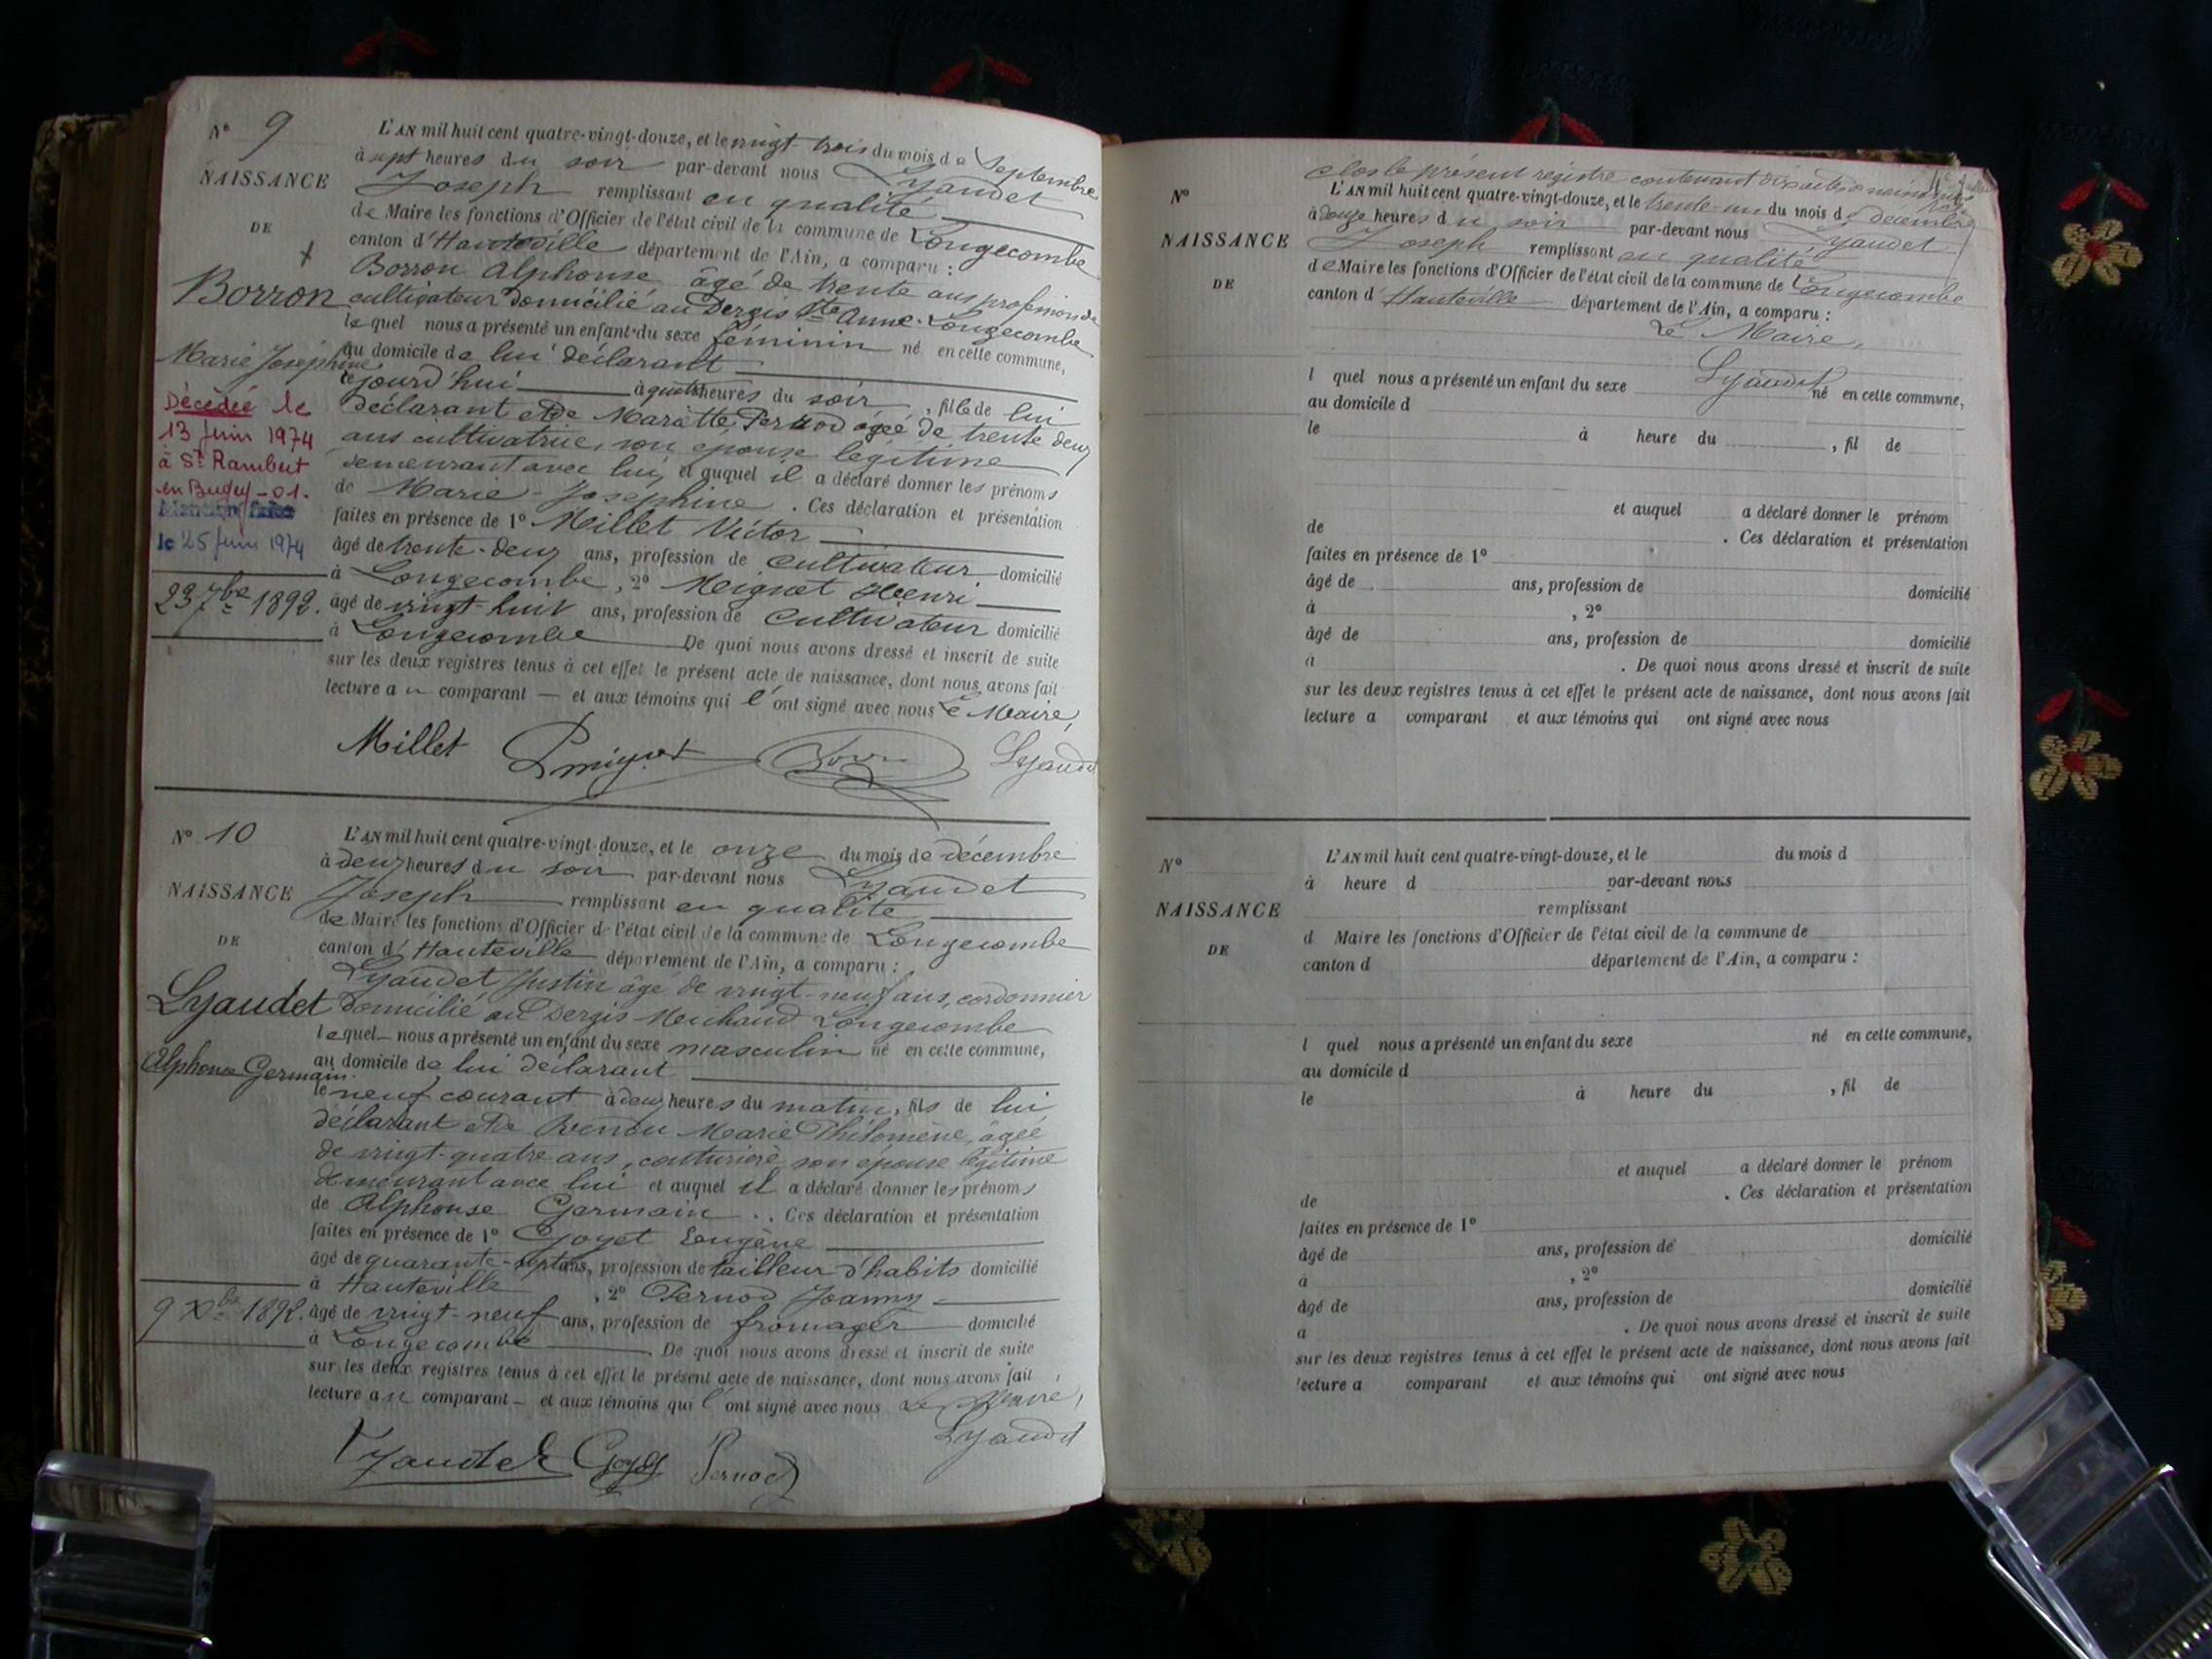 N° 9
NAISSANCE
DE
Borron
Marie Joséphine
Décédée le
13 Juin 1974
à St Rambert
en Bugey - 01.
le 25 Juin 1974
23 7bre 1892.
L'AN mil huit cent quatre-vingt-douze, et le vingt trois du mois de Septembre
à sept heures du soir par-devant nous Lyaudet
Joseph remplissant en qualité
de Maire les fonctions d'Officier de l'état civil de la commune de Longecombe
canton d'Hauteville département de l'Ain, a comparu :
Borron Alphonse, âgé de trente ans profession de
cultivateur domicilié au Dergis Ste Anne. Longecombe
lequel nous a présenté un enfant du sexe féminin né en cette commune,
au domicile de lui déclarant
cejourd'hui à quatre heures du soir, fille de lui
déclarant et de Mariette Pernod âgée de trente deux
ans cultivatrice, son épouse légitime
demeurant avec lui, et auquel il a déclaré donner les prénoms
de Marie-Joséphine. Ces déclaration et présentation
faites en présence de 1° Millet Victor
âgé de trente-deux ans, profession de cultivateur domicilié
à Longecombe, 2° Meignot Henri
âgé de vingt-huit ans, profession de Cultivateur domicilié
à Longecombe De quoi nous avons dressé et inscrit de suite
sur les deux registres tenus à cet effet le présent acte de naissance, dont nous avons fait
lecture au comparant — et aux témoins qui l'ont signé avec nous Le Maire,
Millet Lyaudet
N° 10
NAISSANCE
DE
Lyaudet
Alphonse Germain.
9 Xbre 1892.
L'AN mil huit cent quatre-vingt-douze, et le onze du mois de décembre
à deux heures du soir par-devant nous Lyaudet
Joseph remplissant en qualité
de Maire les fonctions d'Officier de l'état civil de la commune de Longecombe
canton d'Hauteville département de l'Ain, a comparu :
Lyaudet Justin âgé de vingt-neuf ans, cordonnier
domicilié au Dergis Michaud Longecombe
lequel nous a présenté un enfant du sexe masculin né en cette commune,
au domicile de lui déclarant
le neuf courant à deux heures du matin, fils de lui
déclarant et de Marie Philomène, âgée
de vingt-quatre ans, couturière son épouse légitime
demeurant avec lui et auquel il a déclaré donner les prénoms
de Alphonse Germain. Ces déclaration et présentation
faites en présence de 1° Goyet Eugène
âgé de quarante-sept ans, profession de tailleur d'habits domicilié
à Hauteville, 2° Pernod Joanny
âgé de vingt-neuf ans, profession de fromager domicilié
à Longecombe De quoi nous avons dressé et inscrit de suite
sur les deux registres tenus à cet effet le présent acte de naissance, dont nous avons fait
lecture au comparant — et aux témoins qui l'ont signé avec nous Le Maire,
Lyaudet Goyet Pernod Lyaudet
Clos le présent registre contenant dix actes de naissances
N°
NAISSANCE
DE
L'AN mil huit cent quatre-vingt-douze, et le trente-un du mois de décembre
à douze heures du soir par-devant nous Lyaudet
Joseph remplissant en qualité
de Maire les fonctions d'Officier de l'état civil de la commune de Longecombe
canton d'Hauteville département de l'Ain, a comparu :
Le Maire,
Lyaudet
l quel nous a présenté un enfant du sexe né en cette commune,
au domicile d
le à heure du , fil de
et auquel a déclaré donner le prénom
de . Ces déclaration et présentation
faites en présence de 1°
âgé de ans, profession de domicilié
à , 2°
âgé de ans, profession de domicilié
à . De quoi nous avons dressé et inscrit de suite
sur les deux registres tenus à cet effet le présent acte de naissance, dont nous avons fait
lecture a comparant et aux témoins qui ont signé avec nous
N°
NAISSANCE
DE
L'AN mil huit cent quatre-vingt-douze, et le du mois d
à heure d par-devant nous
remplissant
d Maire les fonctions d'Officier de l'état civil de la commune de
canton d département de l'Ain, a comparu :
l quel nous a présenté un enfant du sexe né en cette commune,
au domicile d
le à heure du , fil de
et auquel a déclaré donner le prénom
de . Ces déclaration et présentation
faites en présence de 1°
âgé de ans, profession de domicilié
à , 2°
âgé de ans, profession de domicilié
a . De quoi nous avons dressé et inscrit de suite
sur les deux registres tenus à cet effet le présent acte de naissance, dont nous avons fait
lecture a comparant et aux témoins qui ont signé avec nous